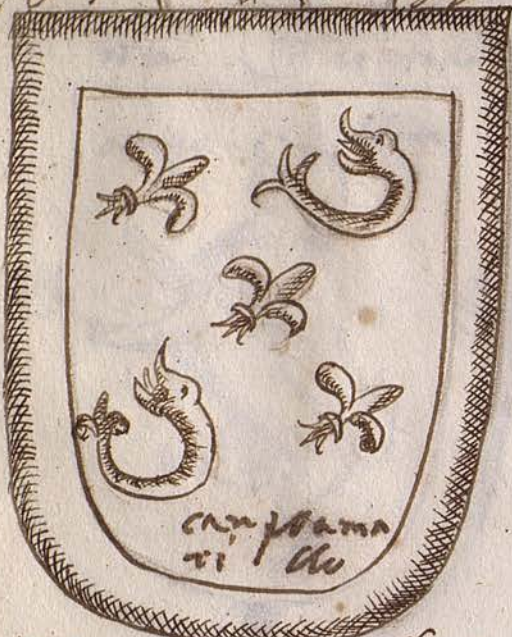 canpo ama
ri llo